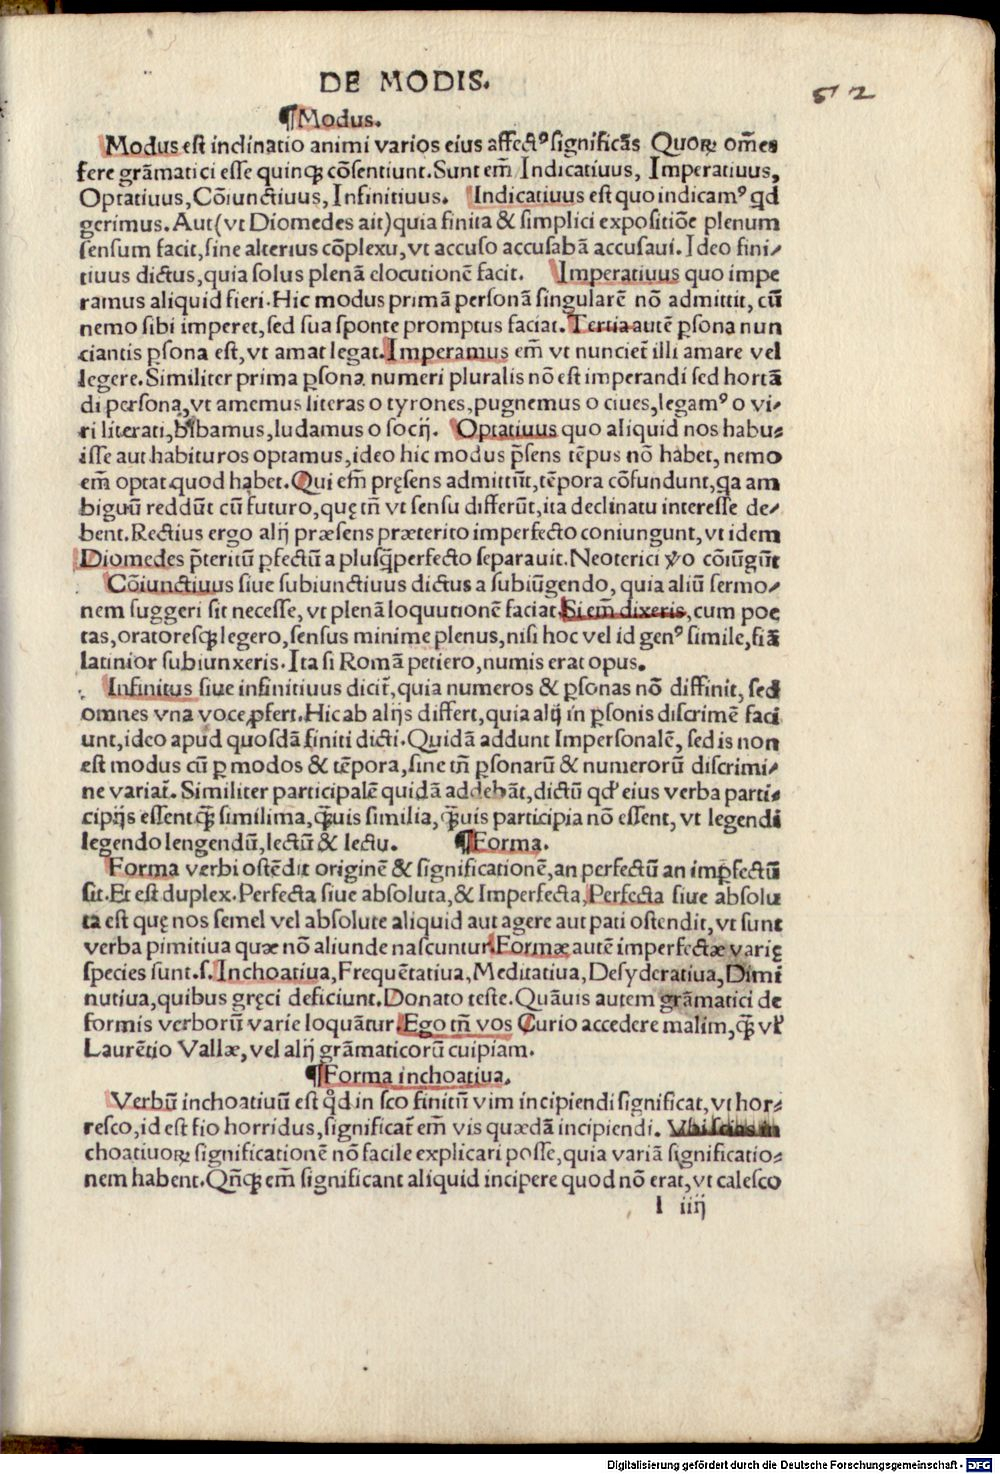 DE MODIS.
52
¶Modus.
Modus est inclinatio animi varios eius affectꝰ significãs Quoꝝ om̃es
fere grãmatici esse quinqꝫ cõsentiunt. Sunt em̃ Indicatiuus, Imperatiuus,
Optatiuus, Cõiunctiuus, Infinitiuus. Indicatiuus est quo indicamꝰ qd
gerimus. Aut (vt Diomedes ait) quia finita & simplici expositiõe plenum
sensum facit, sine alterius cõplexu, vt accuso accusabã accusaui. Ideo fini⸗
tiuus dictus, quia solus plenã elocutionẽ facit. Imperatiuus quo impe
ramus aliquid fieri. Hic modus primã personã singularẽ nõ admittit, cũ
nemo sibi imperet, sed sua sponte promptus faciat. Tertia autẽ ꝑsona nun
ciantis ꝑsona est, vt amat legat. Imperamus em̃ vt nunciet̃ illi amare vel
legere. Similiter prima ꝑsona numeri pluralis nõ est imperandi sed hortã
di persona, vt amemus literas o tyrones, pugnemus o ciues, legamꝰ o vi⸗
ri literati, bibamus, ludamus o socij. Optatiuus quo aliquid nos habu⸗
isse aut habituros optamus, ideo hic modus p̃sens tẽpus nõ habet, nemo
em̃ optat quod habet. Qui em̃ pręsens admittũt, tẽpora cõfundunt, qa am
biguũ reddũt cũ futuro, quę tñ vt sensu differũt, ita declinatu interesse de⸗
bent. Rectius ergo alij præsens præterito imperfecto coniungunt, vt idem
Diomedes p̃teritũ ꝑfectũ a plusq̃perfecto separauit. Neoterici ṽo cõiũgũt
Cõiunctiuus siue subiunctiuus dictus a subiũgendo, quia aliũ sermo⸗
nem suggeri sit necesse, vt plenã loquutionẽ faciat. Si em̃ dixeris, cum poę
tas, oratoresqꝫ legero, sensus minime plenus, nisi hoc vel id genꝰ simile, fiã
latinior subiunxeris. Ita si Romã petiero, numis erat opus.
Infinitus siue infinitiuus dicit̃, quia numeros & ꝑsonas nõ diffinit, sed
omnes vna voce ꝓfert. Hic ab alijs differt, quia alij in ꝑsonis discrimẽ faci
unt, ideo apud quosdã finiti dicti. Quidã addunt Impersonalẽ, sed is non
est modus cũ ꝑ modos & tẽpora, sine tñ ꝑsonarũ & numerorũ discrimi⸗
ne variat̃. Similiter participalẽ quidã addebãt, dictũ qd' eius verba parti⸗
cipijs essent q̃ꝫ similima, q̃ꝫuis similia, q̃ꝫuis participia nõ essent, vt legendi
legendo lengendũ, lectũ & lectu. ¶Forma.
Forma verbi ostẽdit originẽ & significationẽ, an perfectũ an imꝑfectũ
sit. Et est duplex. Perfecta siue absoluta, & Imperfecta, Perfecta siue absolu
ta est quę nos semel vel absolute aliquid aut agere aut pati ostendit, vt sunt
verba pimitiua quæ nõ aliunde nascuntur. Formæ autẽ imperfectæ varię
species sunt. s. Inchoatiua, Frequẽtatiua, Meditatiua, Desyderatiua, Dimi
nutiua, quibus gręci deficiunt. Donato teste. Quãuis autem grãmatici de
formis verborũ varie loquãtur. Ego tñ vos Curio accedere malim, q̃ꝫ vl'
Laurẽtio Vallæ, vel alij grãmaticorũ cuipiam.
¶Forma inchoatiua.
Verbũ inchoatiuũ est qd in sco finitũ vim incipiendi significat, vt hor⸗
resco, id est fio horridus, significat̃ em̃ vis quædã incipiendi.
choatiuoꝝ significationẽ nõ facile explicari posse, quia variã significatio⸗
nem habent. Qñqꝫ em̃ significant aliquid incipere quod nõ erat, vt calesco
l iiij
Digitalisierung gefördert durch die Deutsche Forschungsgemeinschaft - DFG